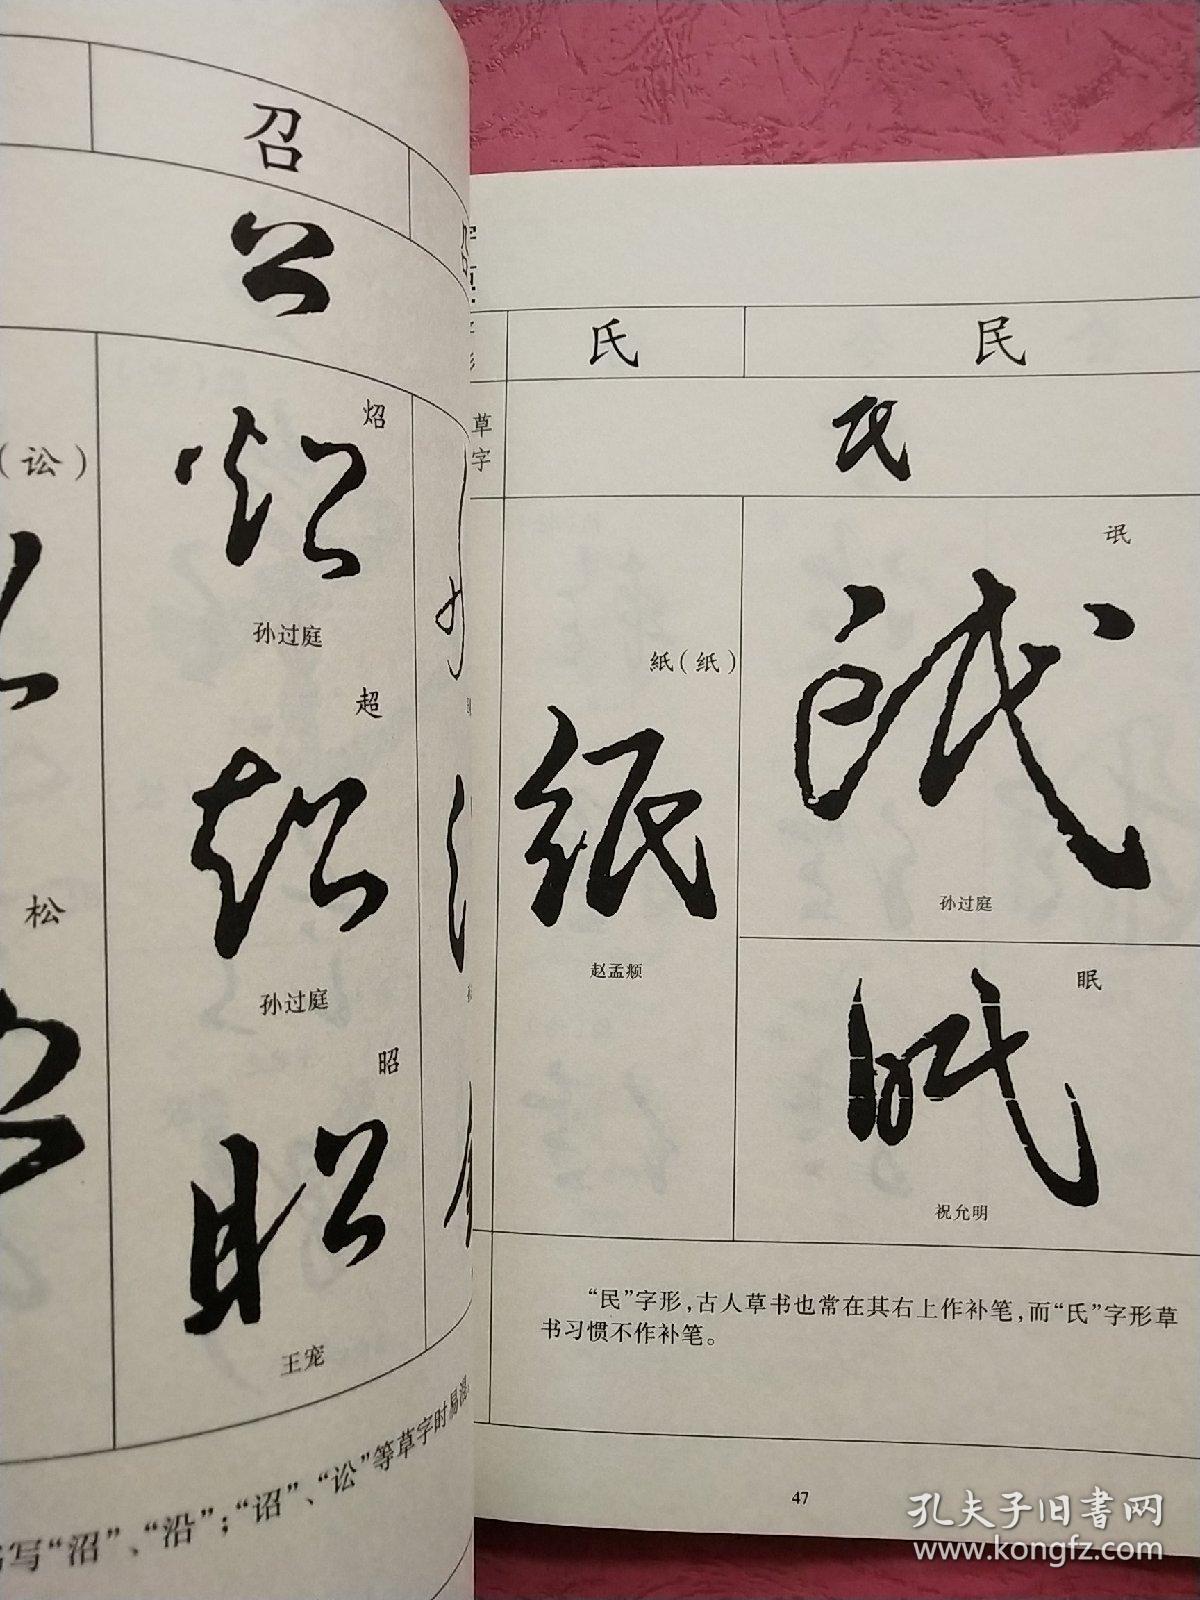 召
(讼)
炤
孙过庭
超
孙过庭
松
昭
王宠
写“沼”、“沿”；“诏”、“讼”等草字时易混
氏
民
草
字
氓
紙(纸)
孙过庭
赵孟頫
眠
祝允明
“民”字形,古人草书也常在其右上作补笔,而“氏”字形草
书习惯不作补笔。
47
孔夫子旧书网
www.kongfz.com